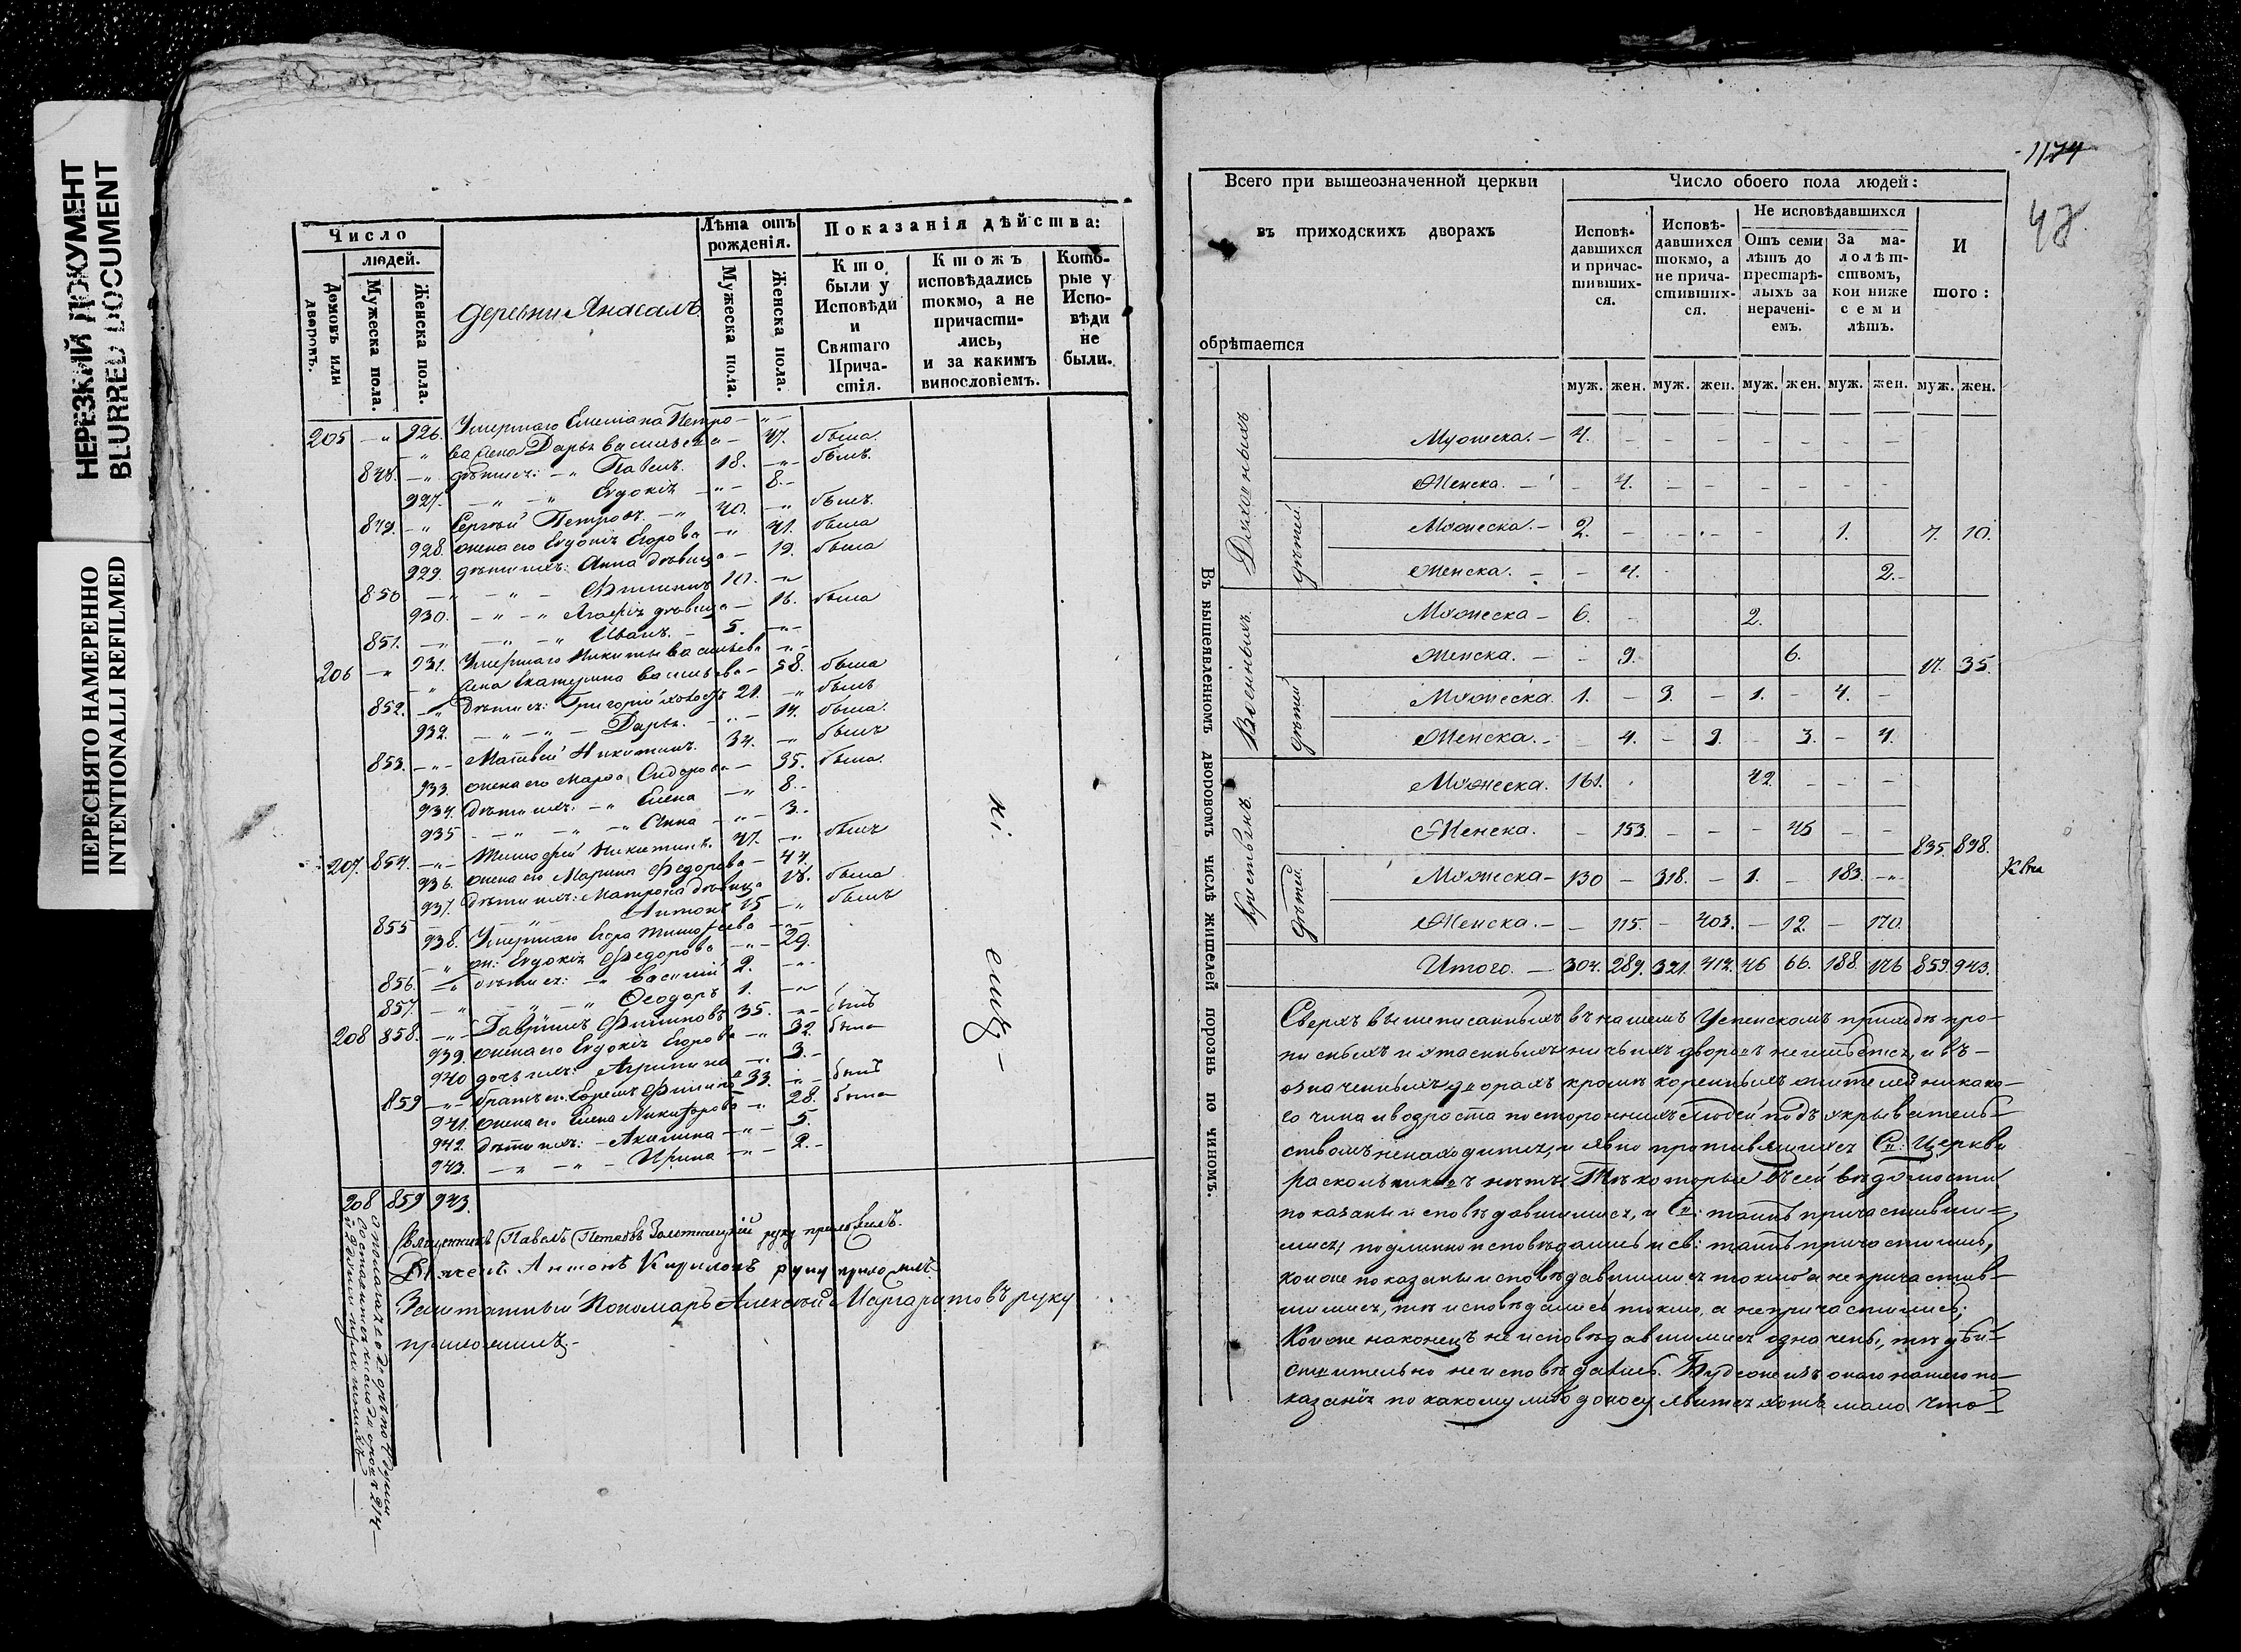 НЕРЕЗКИЙ ДОКУМЕНТ
BLURRED DOCUMENT
ПЕРЕСНЯТО НАМЕРЕННО
INTENTIONALLI REFILMED
Число
людей.
Домовъ или дворовъ.
Мужеска пола.
Женска пола.
деревни
Лѣта отъ рожденія.
Мужеска пола.
Женска пола.
Показанія дѣйства:
Кто были у Исповѣди и Святаго Причастія.
Ктожъ исповѣдались токмо, а не причастились, и за какимъ винословіемъ.
Которые у Исповѣди не были.
205 926. Умершаго Емелiана Петро-
ва жена Дарья Васильева 47. была.
848. дѣти ея: Павелъ. 18. былъ.
927. Евдокія 8.
849. Сергѣй Петровъ. 40. былъ.
928. жена его Евдокія Егорова 41. была
929. дѣти ихъ: Анна дѣвица 19. была
850 Филиппъ 10.
930. Агафія дѣвица 16. была
851. Иванъ. 5.
206 931. Умершаго Никиты Васильева
жена Екатерина Васильева 58. была
852. дѣти ея: Григорій холостъ 21. былъ
932. Дарья. 14. была.
853. Матвей Никитинъ. 34. былъ
933. жена его Марѳа Сидорова 35. была.
934. дѣти ихъ: Елена 8.
935 Анна 3.
207. 854. Тимофей Никитинъ. 47. былъ
936. жена его Марина Федорова 44.
937. дѣти ихъ: Матрона дѣвица 18. была
855 Антонъ 15 былъ
938. Умершаго Егора Тимофеева
ж: Евдокія Федорова 29.
856. дѣти ея: Василій 2.
857. Ѳеодоръ 1.
208 858. Гаврiилъ Филиповъ 35. былъ
939. жена его Евдокія Егорова 32. была
940 дочь ихъ: Агрипина 3.
859 братъ его Ефремъ Филиповъ 33. былъ
941. жена его Елена Никифорова 28. была
942. дѣти ихъ: Акилина 5.
943. Ирина 2.
208 859 943.
Священникъ Павелъ Петровъ Золотницкій руку приложилъ.
Дьячекъ Антонъ Кириловъ руку приложилъ.
Заштатный Пономарь Алексѣй Маргаритовъ руку
приложилъ.
1174
48
Всего при вышеозначенной церкви
въ приходскихъ дворахъ
обрѣтается
Число обоего пола людей:
Исповѣдавшихся и причастившихся.
Исповѣдавшихся токмо, а не причастившихся.
Не исповѣдавшихся
Отъ семи лѣтъ до престарѣлыхъ за нерачені-емъ.
За малолѣтствомъ, кои ниже семи лѣтъ.
И того:
муж. жен. муж. жен. муж. жен. муж. жен. муж. жен.
Въ вышеявленномъ дворовомъ числѣ жителей порознь по чиномъ.
Духовныхъ
Мужеска. 4.
Женска. 4.
дѣтей.
Мужеска. 2. 1. 7. 10.
Женска. 4. 2.
Военныхъ.
Мужеска 6. 2.
Женска. 9. 6. 17. 35.
дѣтей
Мужеска. 1. 3. 1. 4.
Женска. 4. 9. 3. 4.
Крестьянъ.
Мужеска. 161. 42.
Женска. 153. 45
835. 898.
дѣтей.
Мужеска 130 318. 1. 183.
Женска. 115. 403. 12. 170.
Итого. 304. 289. 321. 412. 46 66. 188. 176 859. 943.
Сверхъ вышеписанныхъ въ нашемъ Успенскомъ приходѣ про-
писныхъ и утаенныхъ ничьихъ дворовъ неимѣется, и въ
означенныхъ дворахъ кромѣ коренныхъ жителей никако-
го чина и возраста постороннихъ людей подъ укрыватель-
ствомъ ненаходится, и явно противящихся Св: Церкви
раскольниковъ нѣтъ. Тѣ которые въ сей вѣдомости
показаны исповѣдавшимися, и Св: таинъ причастивши-
мися, подлинно исповѣдались и св: таинъ причастились,
кои же показаны исповѣдавшимися токмо а не причастив-
шимися, тѣ исповѣдались токмо, а непричастились;
Кои же наконецъ не исповѣдавшимися означены, тѣ дѣй-
ствительно не исповѣдались. Будеже изъ онаго нашего по-
казанія по какому либо доносу явится хотя мало что